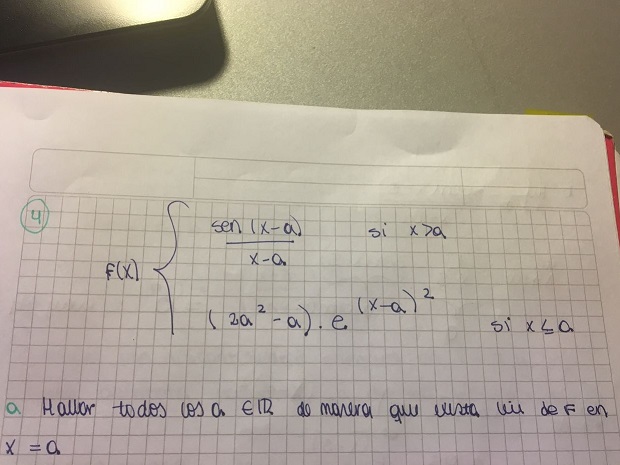 4
f(x) { sen (x-a) / x-a si x>a
(2a² - a) . e^(x-a)² si x ≤ a
a Hallar todos los a ∈ IR de manera que exista lim de F en
x = a